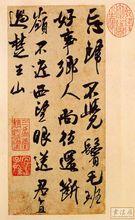 忘歸不覺鬢毛斑
好事鄉人尚往還斷
嶺不遮西望眼送君直
過楚王山